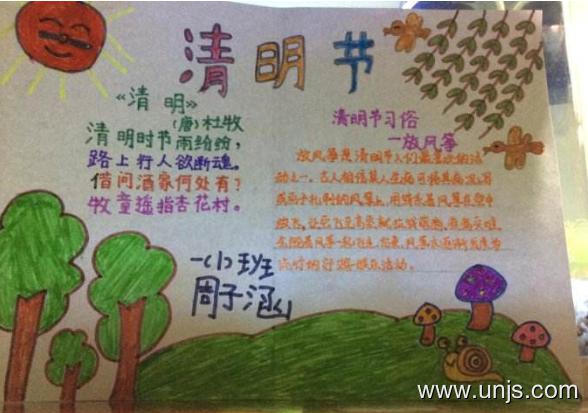 清明节
《清 明》
(唐)杜牧
清明时节雨纷纷,
路上行人欲断魂。
借问酒家何处有?
牧童遥指杏花村。
清明节习俗
—放风筝
放风筝是清明节人们最喜欢的活
动之一。古人相信某人生病可将其病况写
或画于扎制的风筝上,用线系着风筝在空中
放飞,让它飞至高
一(1)班
周子涵
www.unjs.com